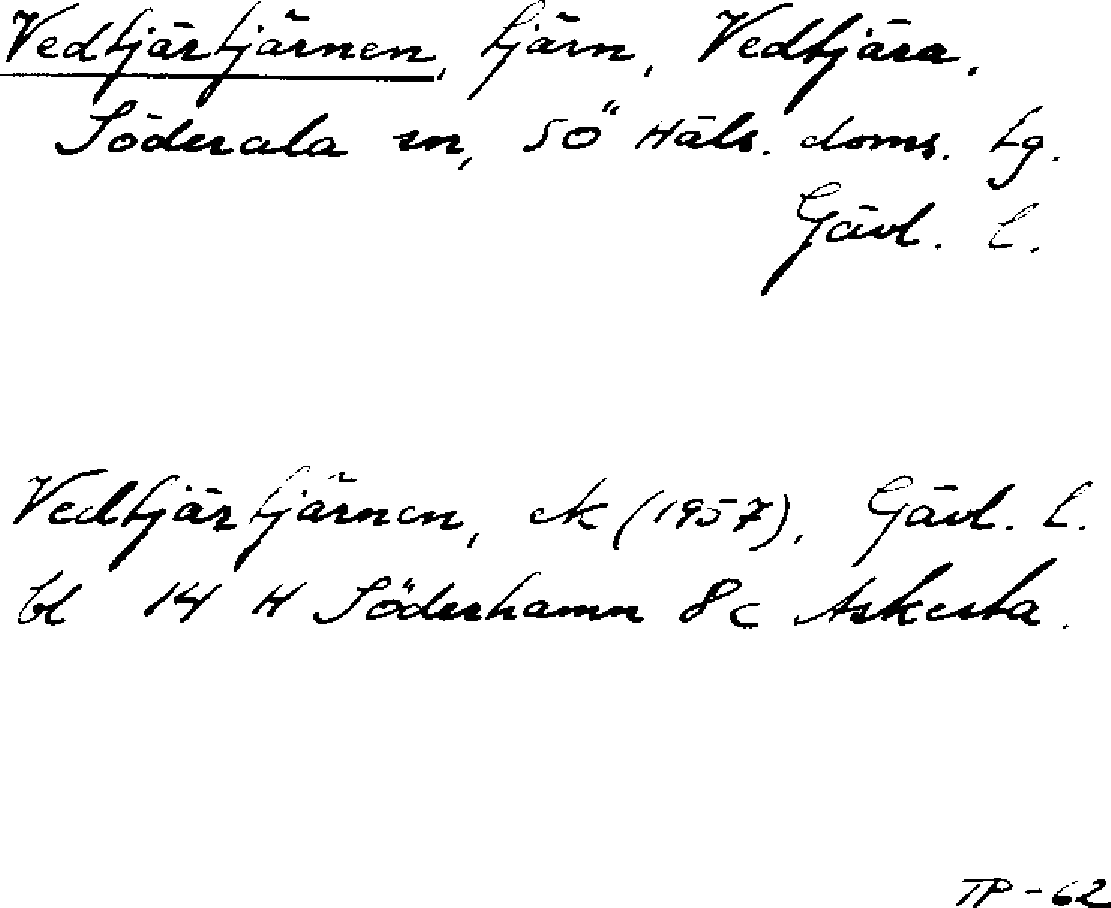 Vedtjärtjärnen, tjärn, Vedtjära,
Söderala sn, SÖ Häls. doms. tg.
Gävl. l.
Vedtjärtjärnen, ek (1957), Gävl. l.
bl 14 H Söderhamn 8c Askesta.
TP-62